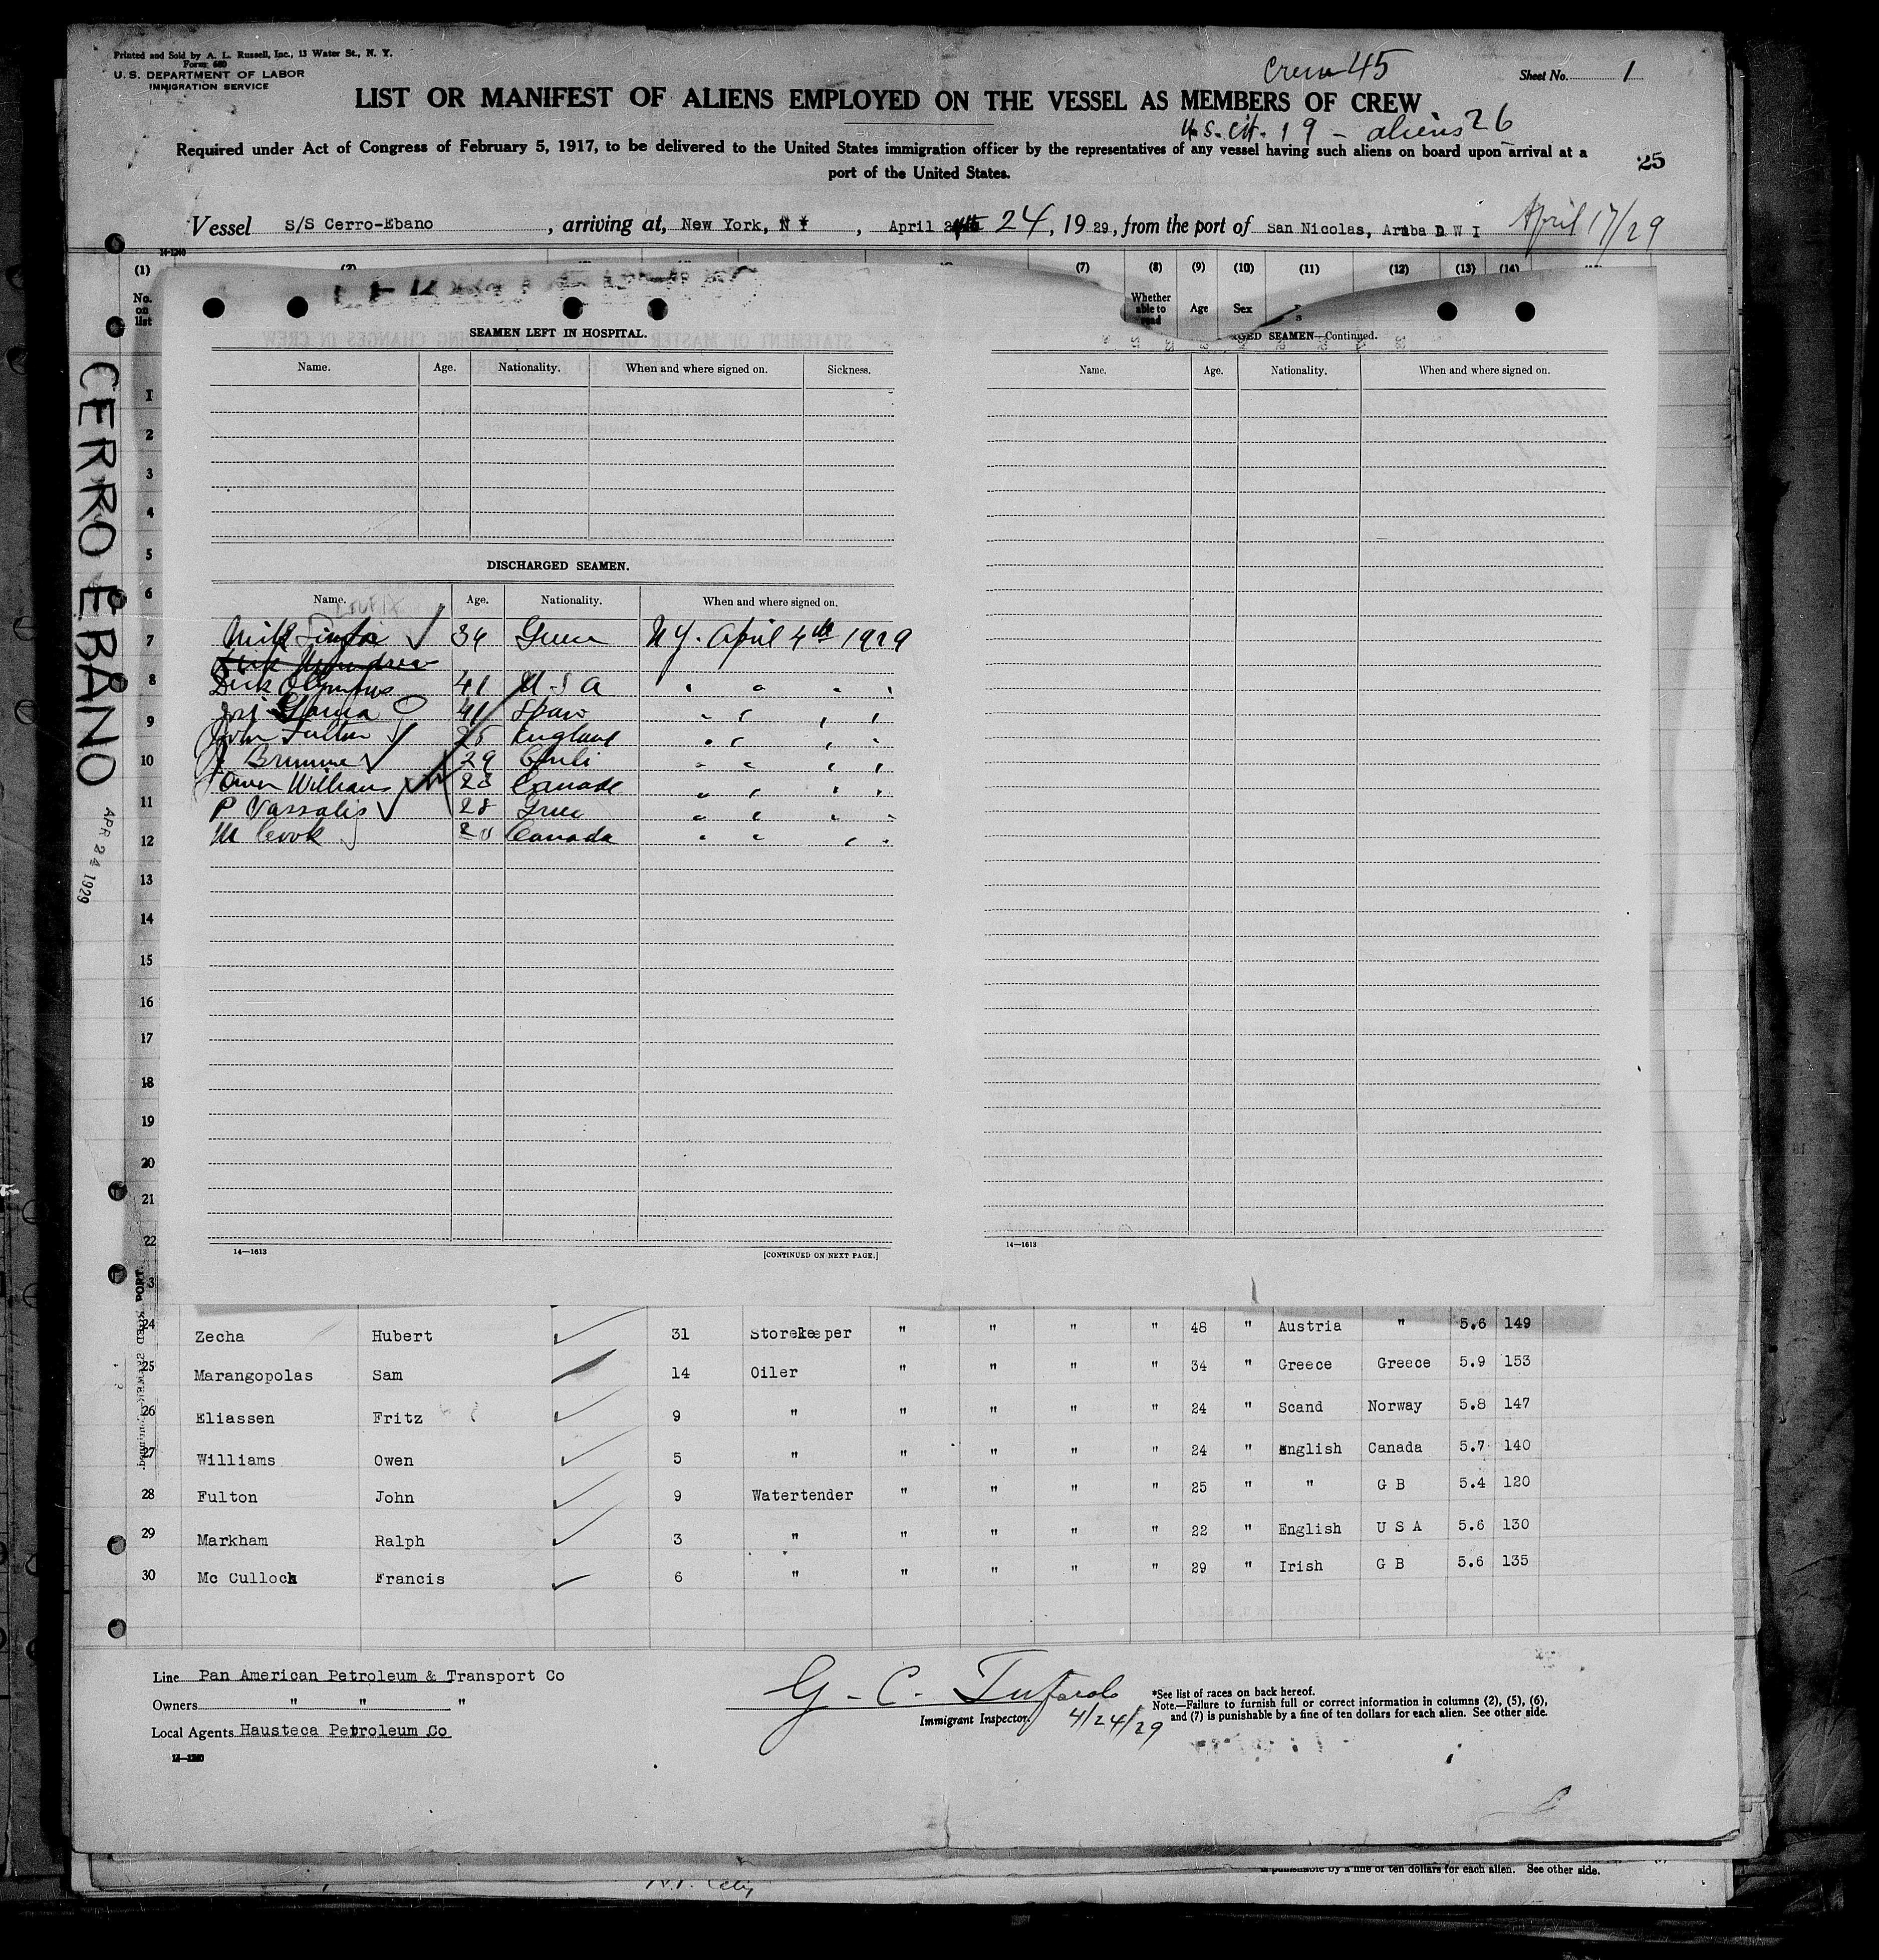 Printed and Sold by A. L. Russell, Inc., 13 Water St., N. Y.
Form 680
U.S. DEPARTMENT OF LABOR
IMMIGRATION SERVICE
Crew 45
Sheet No. 1
LIST OR MANIFEST OF ALIENS EMPLOYED ON THE VESSEL AS MEMBERS OF CREW
U.S. Cit. 19 - aliens 26
Required under Act of Congress of February 5, 1917, to be delivered to the United States immigration officer by the representatives of any vessel having such aliens on board upon arrival at a
port of the United States.
25
Vessel S/S Cerro-Ebano, arriving at, New York, N Y, April 24, 1929, from the port of San Nicolas, Aruba D W I April 17/29
14-1240
(1) (2) (7) (8) (9) (10) (11) (12) (13) (14)
No. on list
Whether able to read
Age
Sex
CERRO EBANO
APR 24 1929
SEAMEN LEFT IN HOSPITAL.
Name. Age. Nationality. When and where signed on. Sickness.
SEAMEN—Continued.
Name. Age. Nationality. When and where signed on.
DISCHARGED SEAMEN.
Name. Age. Nationality. When and where signed on.
34 Greece N Y. April 4th 1929
Dick Olympus 41 U S A " " " "
José Garcia 41 Spain " " " "
John Fulton 25 England " " " "
J Brunnel 29 Chili " " " "
Owen Williams 28 Canada " " " "
P Vassalis 28 Greece " " " "
M Cook 20 Canada " " " "
1
2
3
4
5
6
7
8
9
10
11
12
13
14
15
16
17
18
19
20
21
22
3
14—1613
[CONTINUED ON NEXT PAGE.]
14—1613
24 Zecha Hubert 31 Storekeeper " " " " 48 " Austria " 5.6 149
25 Marangopolas Sam 14 Oiler " " " " 34 " Greece Greece 5.9 153
26 Eliassen Fritz 9 " " " " " 24 " Scand Norway 5.8 147
27 Williams Owen 5 " " " " " 24 " English Canada 5.7 140
28 Fulton John 9 Watertender " " " " 25 " " G B 5.4 120
29 Markham Ralph 3 " " " " " 22 " English U S A 5.6 130
30 Mc Culloch Francis 6 " " " " " 29 " Irish G B 5.6 135
Line Pan American Petroleum & Transport Co
Owners " " "
Local Agents Hausteca Petroleum Co
14-1240
G. C.
Immigrant Inspector. 4/24/29
*See list of races on back hereof.
Note.—Failure to furnish full or correct information in columns (2), (5), (6),
and (7) is punishable by a fine of ten dollars for each alien. See other side.
is punishable by a fine of ten dollars for each alien. See other side.